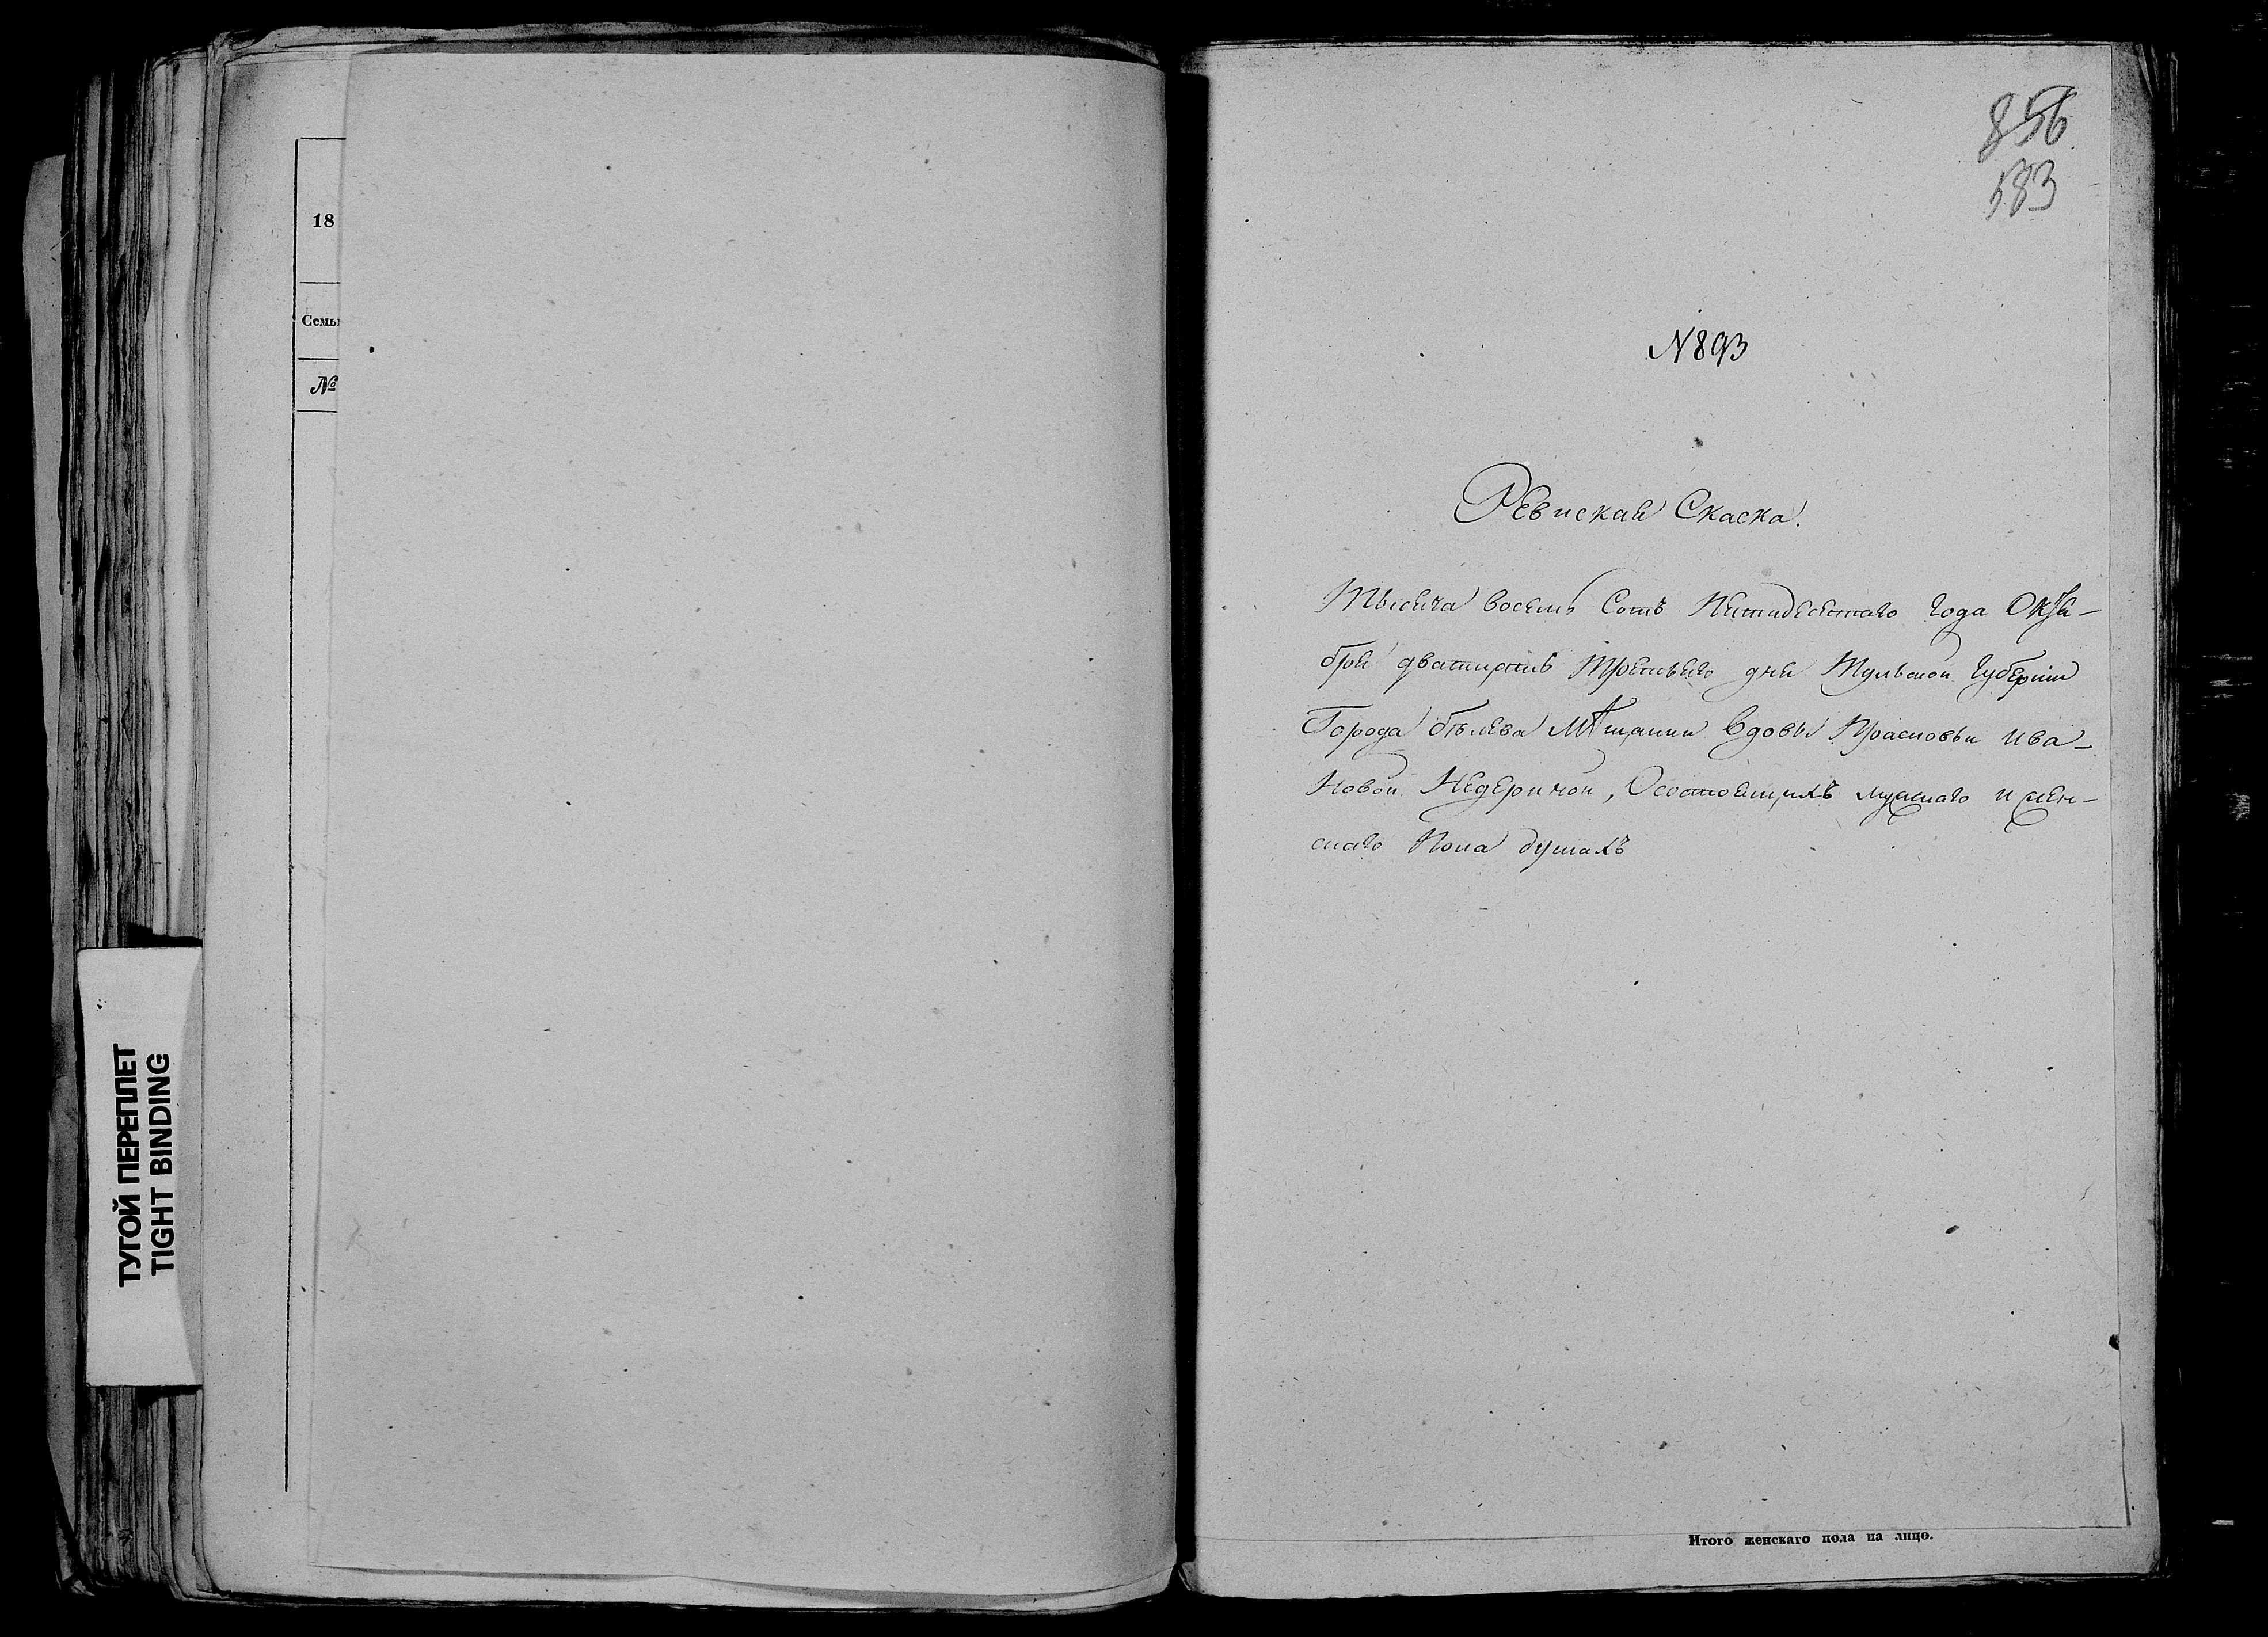 18
Семьи
№
ТУГОЙ ПЕРЕПЛЕТ
TIGHT BINDING
856
583
N 893
Ревиская Скаска.
Тысеча восемь Сотъ Петидесетаго года Октя-
бря дватцать Третьего дня Тульской губернии
Города бѣлева Мѣщанки вдовы Прасковьи ива-
новой, Осостоящихъ мужскаго и жен-
скаго Пола душахъ
Итого женскаго пола на лицо.